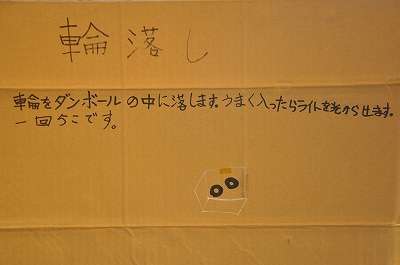 輪落し
車輪をダンボールの中に落します。うまく入ったらライトを光から出ます。
一回5こです。